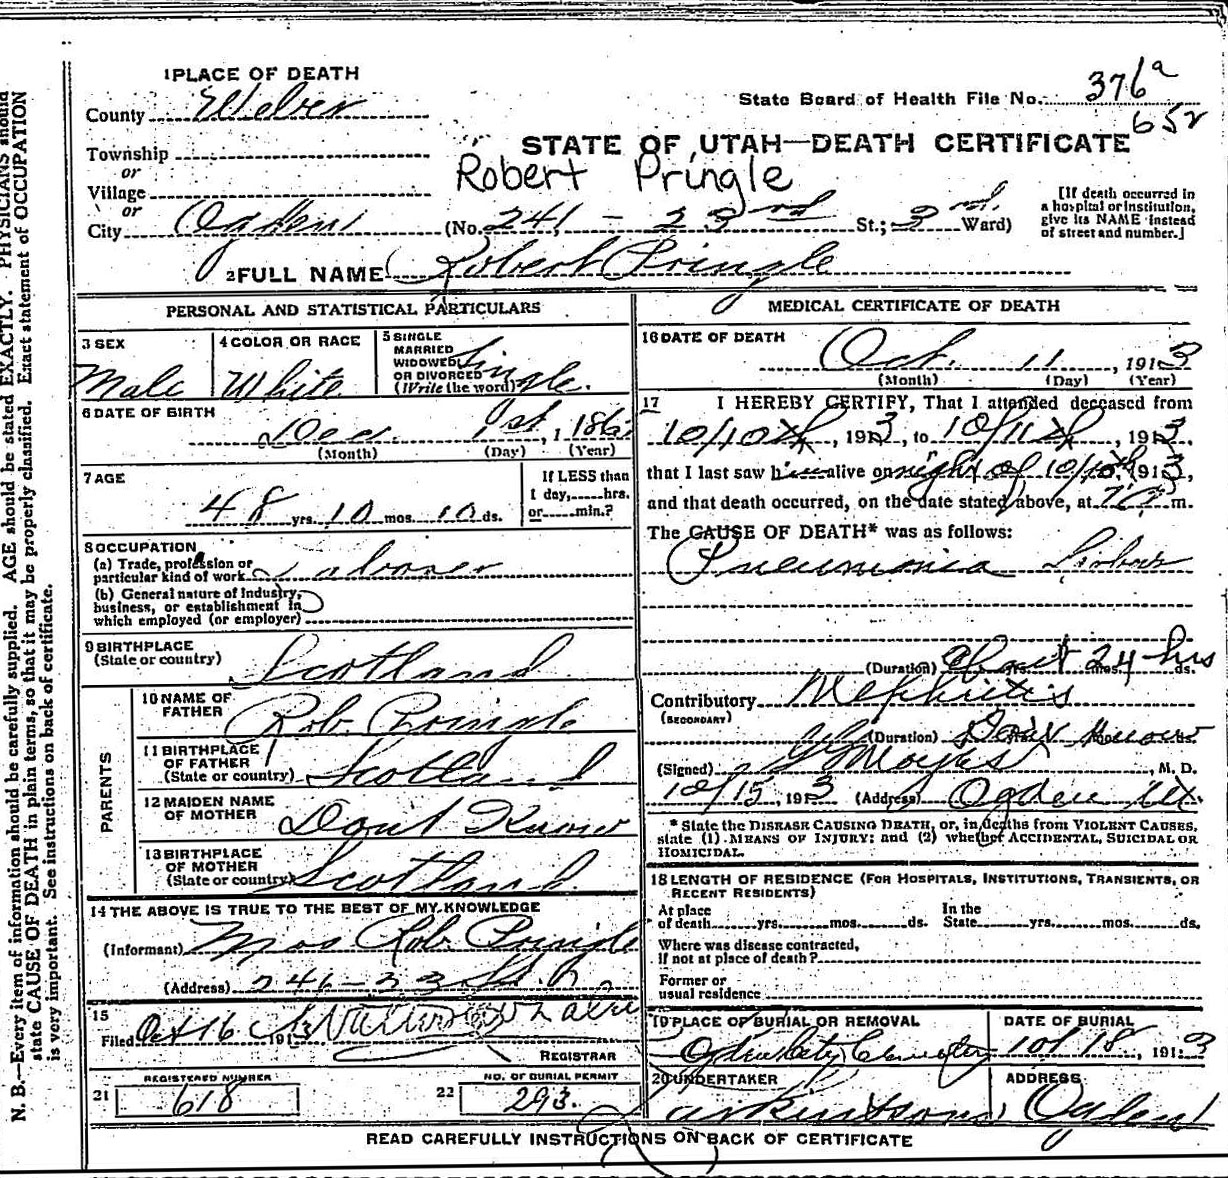 N. B.—Every item of information should be carefully supplied. AGE should be stated EXACTLY. PHYSICIANS should
state CAUSE OF DEATH in plain terms, so that it may be properly classified. Exact statement of OCCUPATION
is very important. See instructions on back of certificate.
1 PLACE OF DEATH
County Weber
State Board of Health File No. 376a
652
Township
or
Village
or
City Ogden
STATE OF UTAH—DEATH CERTIFICATE
Robert Pringle
(No. 241 - 23rd St.; 3rd. Ward)
[If death occurred in
a hospital or institution,
give its NAME instead
of street and number.]
2 FULL NAME Robert Pringle
PERSONAL AND STATISTICAL PARTICULARS
3 SEX
Male
4 COLOR OR RACE
White
5 SINGLE
MARRIED
WIDOWED
OR DIVORCED
(Write the word)
Single.
6 DATE OF BIRTH
Dec. 1st, 186
(Month) (Day) (Year)
7 AGE
48 yrs. 10 mos. 10 ds.
If LESS than
1 day,......hrs.
or......min.?
8 OCCUPATION
(a) Trade, profession or
particular kind of work Laborer
(b) General nature of Industry,
business, or establishment in
which employed (or employer)
9 BIRTHPLACE
(State or country) Scotland
PARENTS
10 NAME OF
FATHER Rob. Pringle
11 BIRTHPLACE
OF FATHER
(State or country) Scotland
12 MAIDEN NAME
OF MOTHER Dont Know
13 BIRTHPLACE
OF MOTHER
(State or country) Scotland
14 THE ABOVE IS TRUE TO THE BEST OF MY KNOWLEDGE
(Informant) Mrs Rob. Pringle
(Address) 246 - 23 St.
15
Filed Oct 16 1913
REGISTRAR
21 REGISTERED NUMBER
618
22 NO. OF BURIAL PERMIT
293.
MEDICAL CERTIFICATE OF DEATH
16 DATE OF DEATH
Oct. 11, 1913
(Month) (Day) (Year)
17 I HEREBY CERTIFY, That I attended deceased from
10/10th, 1913, to 10/11th, 1913,
that I last saw him alive on night of 10/10th 1913,
and that death occurred, on the date stated above, at m.
The CAUSE OF DEATH* was as follows:
Pneumonia Lobar
(Duration) about yrs. 24 mos. hrs ds.
Contributory Nephritis
(SECONDARY)
(Duration) Dont Know
(Signed) Moyes, M. D.
10/15, 1913 (Address) Ogden Ut.
* State the DISEASE CAUSING DEATH, or, in deaths from VIOLENT CAUSES,
state (1) MEANS OF INJURY; and (2) whether ACCIDENTAL, SUICIDAL OR
HOMICIDAL.
18 LENGTH OF RESIDENCE (FOR HOSPITALS, INSTITUTIONS, TRANSIENTS, OR
RECENT RESIDENTS)
At place
of death......yrs......mos......ds.
In the
State......yrs......mos......ds.
Where was disease contracted,
if not at place of death?
Former or
usual residence
19 PLACE OF BURIAL OR REMOVAL
Ogden City Cemetery
DATE OF BURIAL
10/18, 1913
20 UNDERTAKER
Larkin & Sons
ADDRESS
Ogden
READ CAREFULLY INSTRUCTIONS ON BACK OF CERTIFICATE